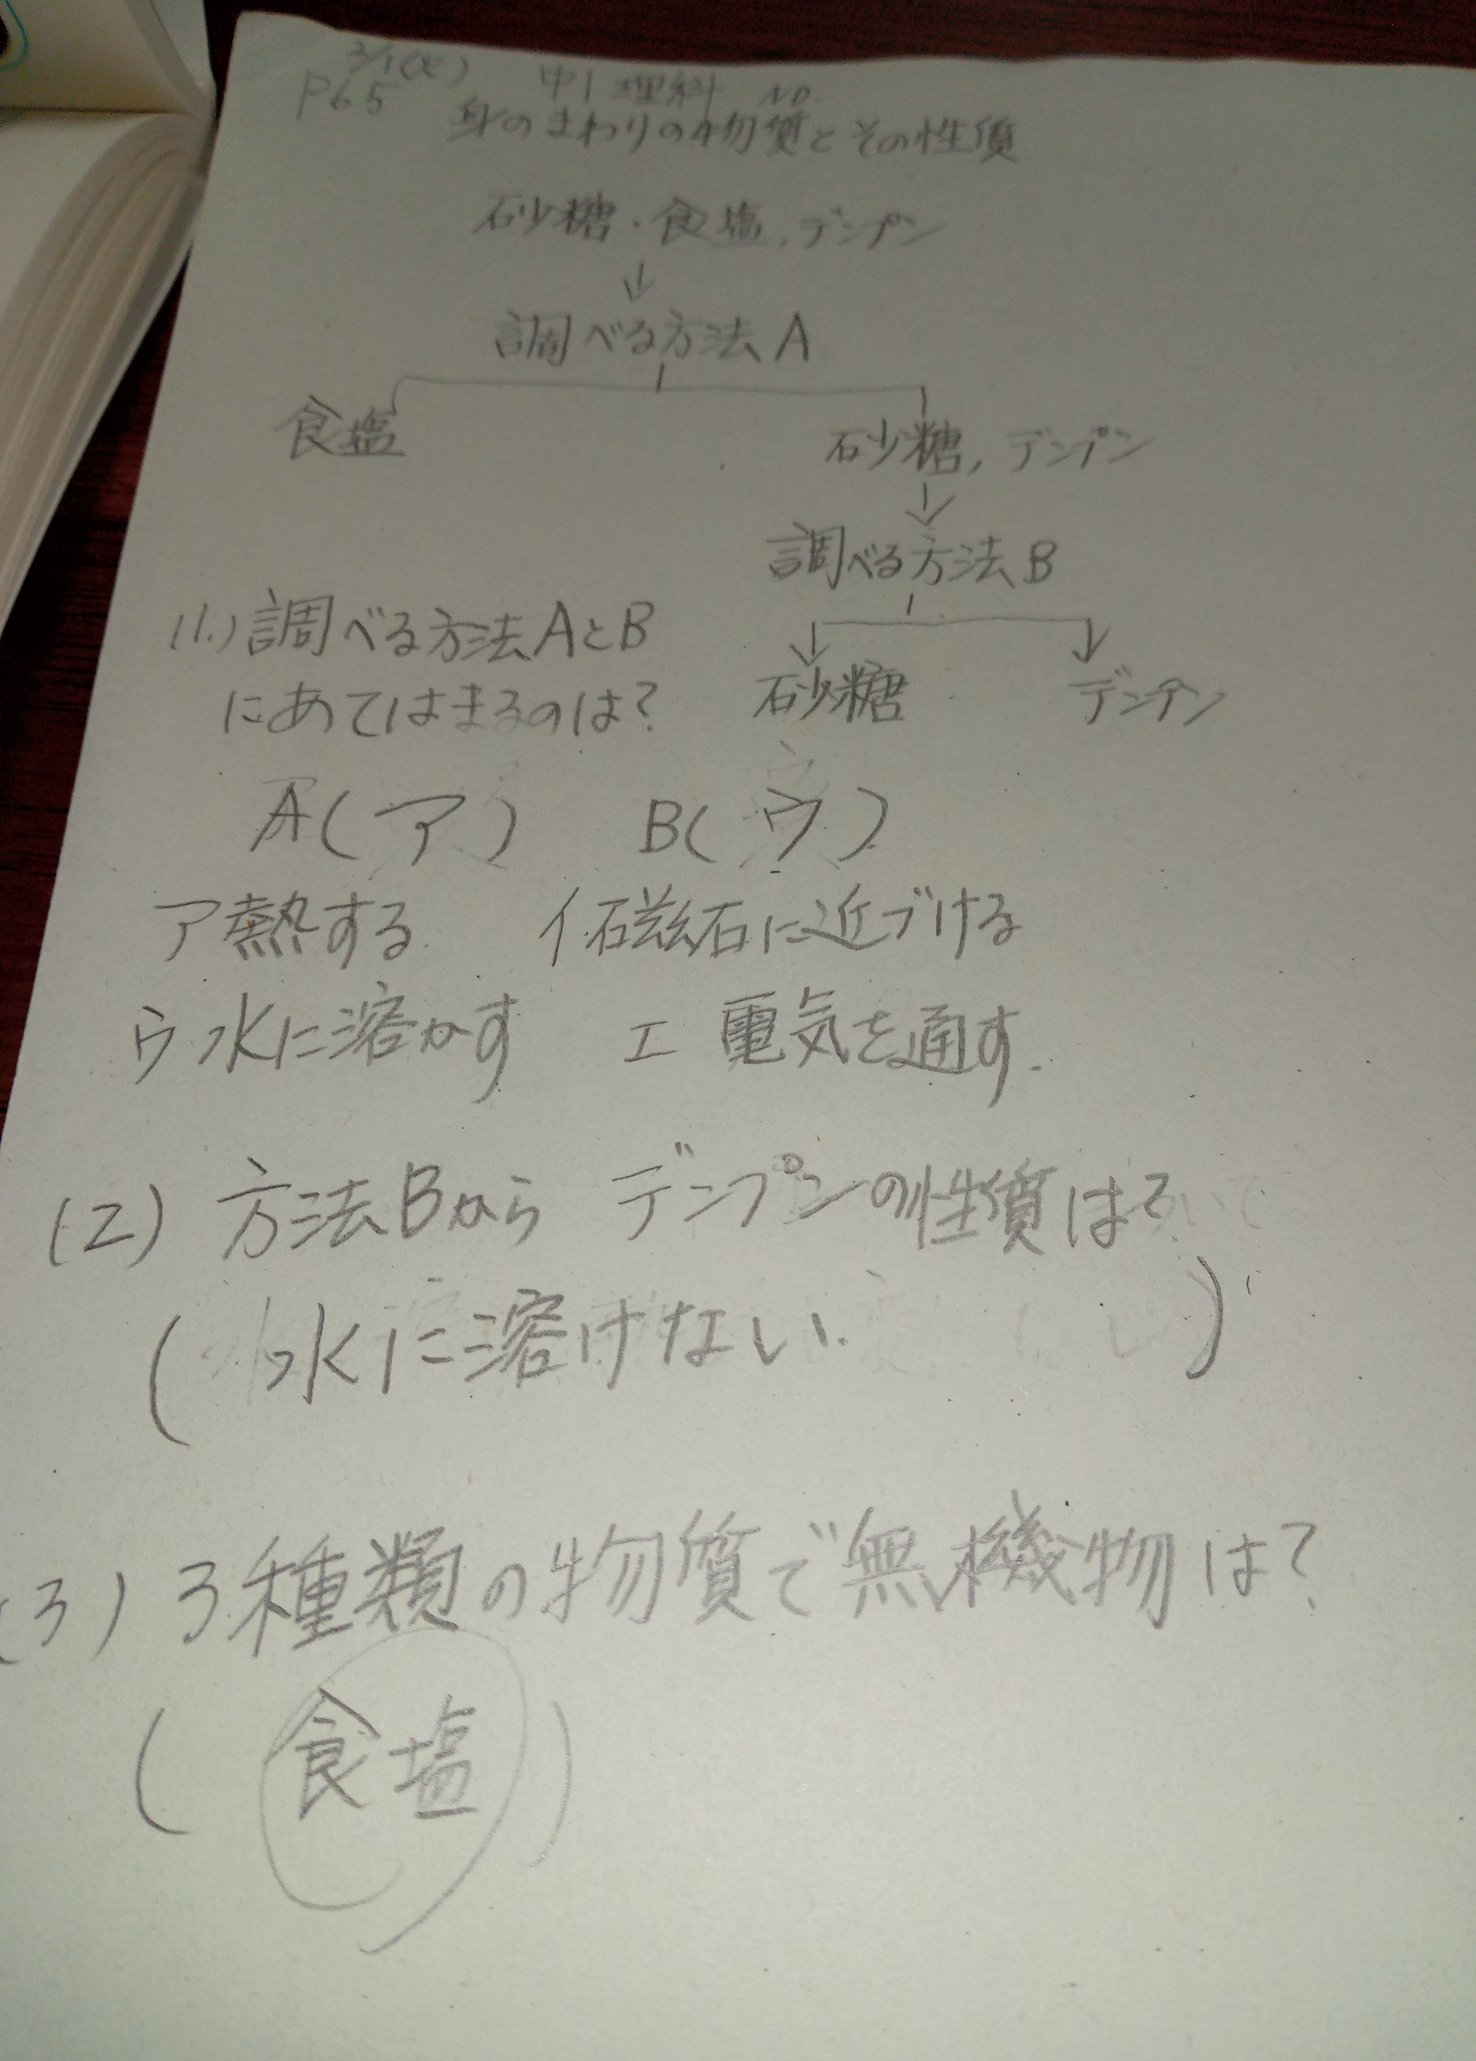 2/1(火) 中1 理科 NO.
P65 身のまわりの物質とその性質
砂糖・食塩,デンプン
↓
調べる方法A
食塩 砂糖,デンプン
↓
調べる方法B
砂糖 デンプン
(1.)調べる方法AとB
にあてはまるのは?
A(ア) B(ウ)
ア熱する イ磁石に近づける
ウ水に溶かす エ電気を通す.
(2)方法Bからデンプンの性質は?
(水に溶けない.)
(3)3種類の物質で無機物は?
(食塩)